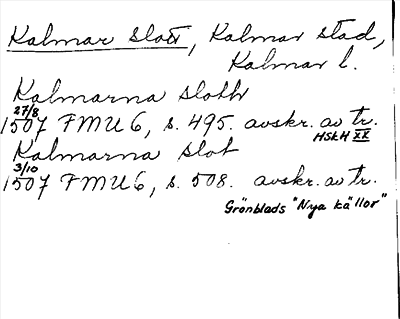 Kalmar slott, Kalmar stad,
Kalmar l.
Kalmarna sloth
27/8
1507 FMU 6, s. 495. avskr. av tr.
HSkH XX
Kalmarna slot
3/10
1507 FMU 6, s. 508. avskr. av tr.
Grönblads "Nya källor"